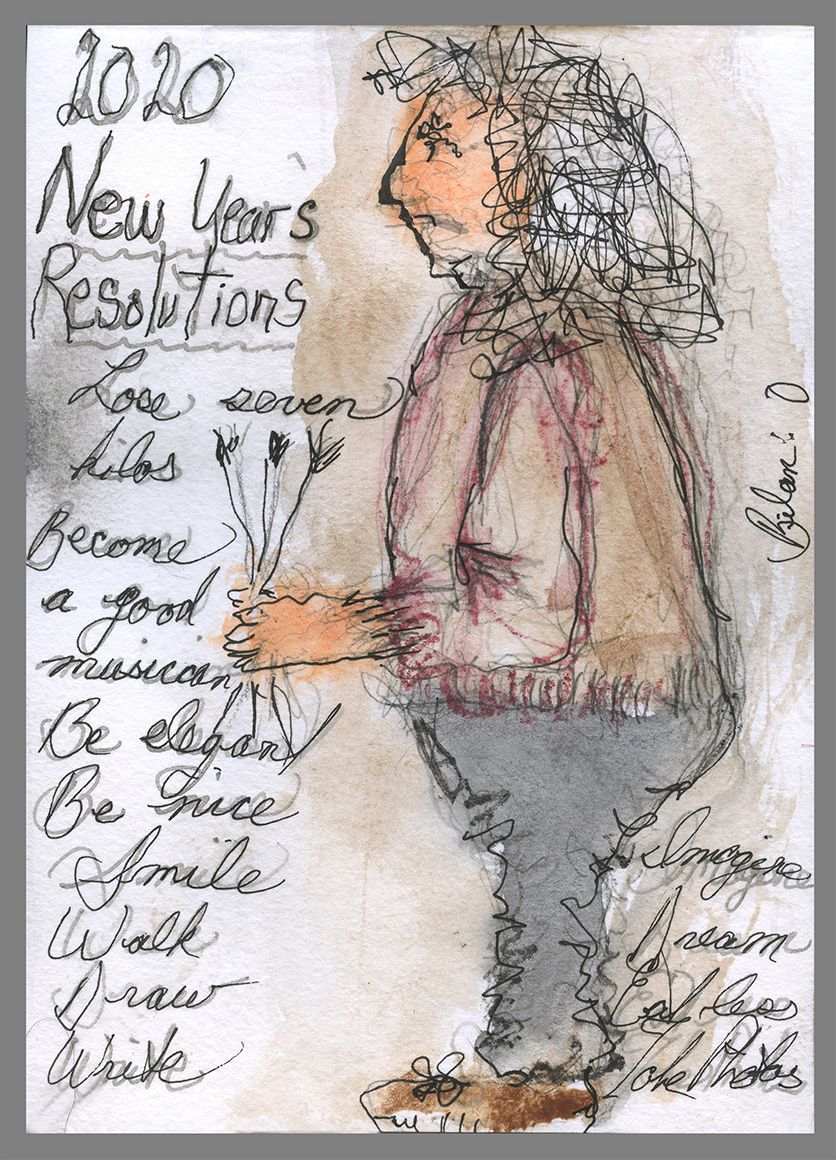 2020
New Year's
Resolutions
Lose seven
kilos
Become
a good
musician
Be elegant
Be nice
Smile
Walk
Draw
Write
Imagine
Dream
Eat less
Take Photos